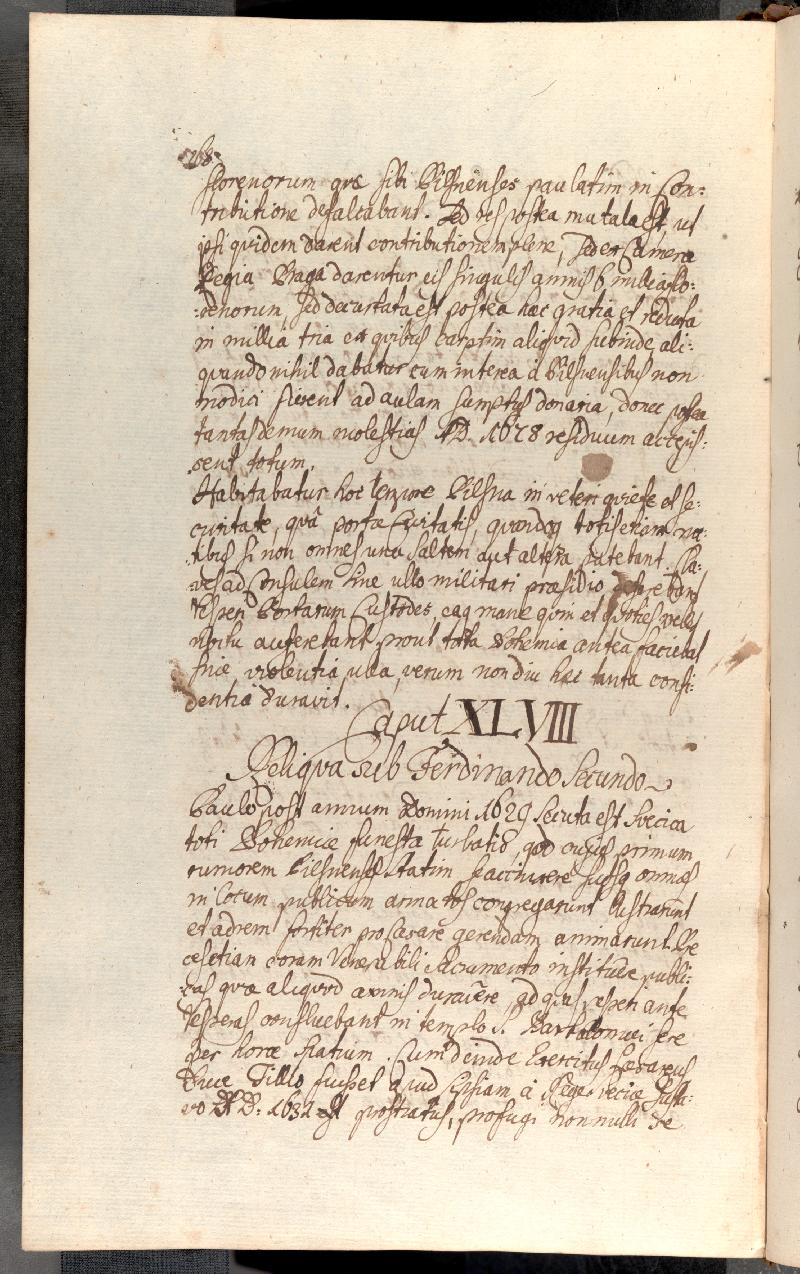 268.
florenorum quae sibi Pilsnenses paulatim in Con:
tributione defalcabant. Sed res postea mutata est, ut
ipsi quidem darent contributionem plene, sed ex Camera
Regia Praga darentur eis singulis annis 6 millia flo:
:renorum, sed decurtata est postea haec gratia et reducta
in millia tria ex quibus carptim aliquid subinde ali:
quando nihil dabatur cum interea a Pilsnensibus non
modici fierent ad aulam sumptus donaria, donec postea
tantas demum molestias A.D. 1628 residuum accepis:
sent totum.
Habitabatur hoc tempore Pilsna in veteri quiete et se:
curitate, quâ portae Civitatis, quandoq totis etiam noc:
:tibus si non omnes una saltem aut altera patebant. Cla:
:ves ad Consulem sine ullo militari praesidio deferebant
vesperi Portarum Custodes, eaq mane qvin et quoties
noctu auferebant prout tota Bohemia antea faciebat
sine violentia ulla, verum non diu haec tanta confi:
dentia duravit.
Caput XLVIII
Reliqva sub Ferdinando Secundo
Paulo post annum Domini 1629 secuta est Svecica
toti Bohemiae funesta turbatio, qod cujus primum
rumorem Pilsnenses statim accurrere jussos omnes
in locum publicum armatos congregarunt lustrarunt
et ad rem fortiter pro Caesare gerendam animarunt. Pre
ces etiam coram Venerabili Sacramento instituere publi:
:cas quae aliqvod annis duravêre, ad quas vesperi ante
vesperas confluebant in templo S. Bartolomaei fere
per horae spatium. Cum deinde Exercitus Caesareus
Duce Tillo fuisset apud Lipsiam à Rege Sveciae Gusta:
vo A. D. 1631 prostratus, profugi nonnulli se